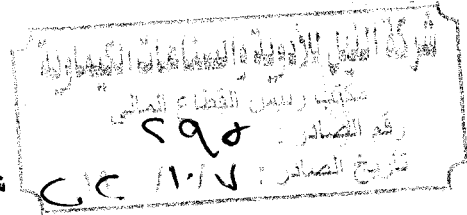 شركة النيل للأدوية والصناعات الكيماوية
مكتب رئيس القطاع المالى
رقم الصادر :
تاريخ الصادر : ٧ / ١٠ / ٢٢